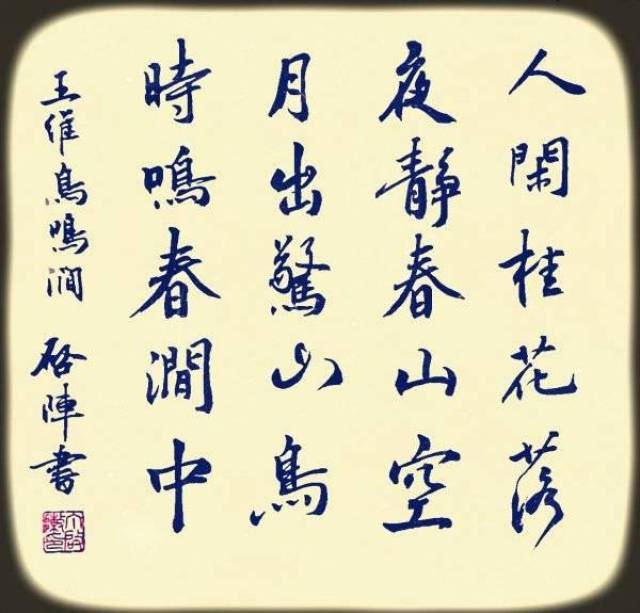 人閑桂花落
夜靜春山空
月出驚山鳥
時鳴春澗中
王維鳥鳴澗 啓陣書